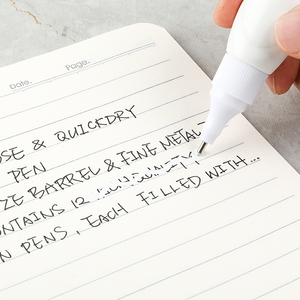 Date.
Page.
OSE & QUICKDRY
PEN
ZE BARREL & FINE METAL
ONTAINS 12
N PENS, EACH FILLED WITH...